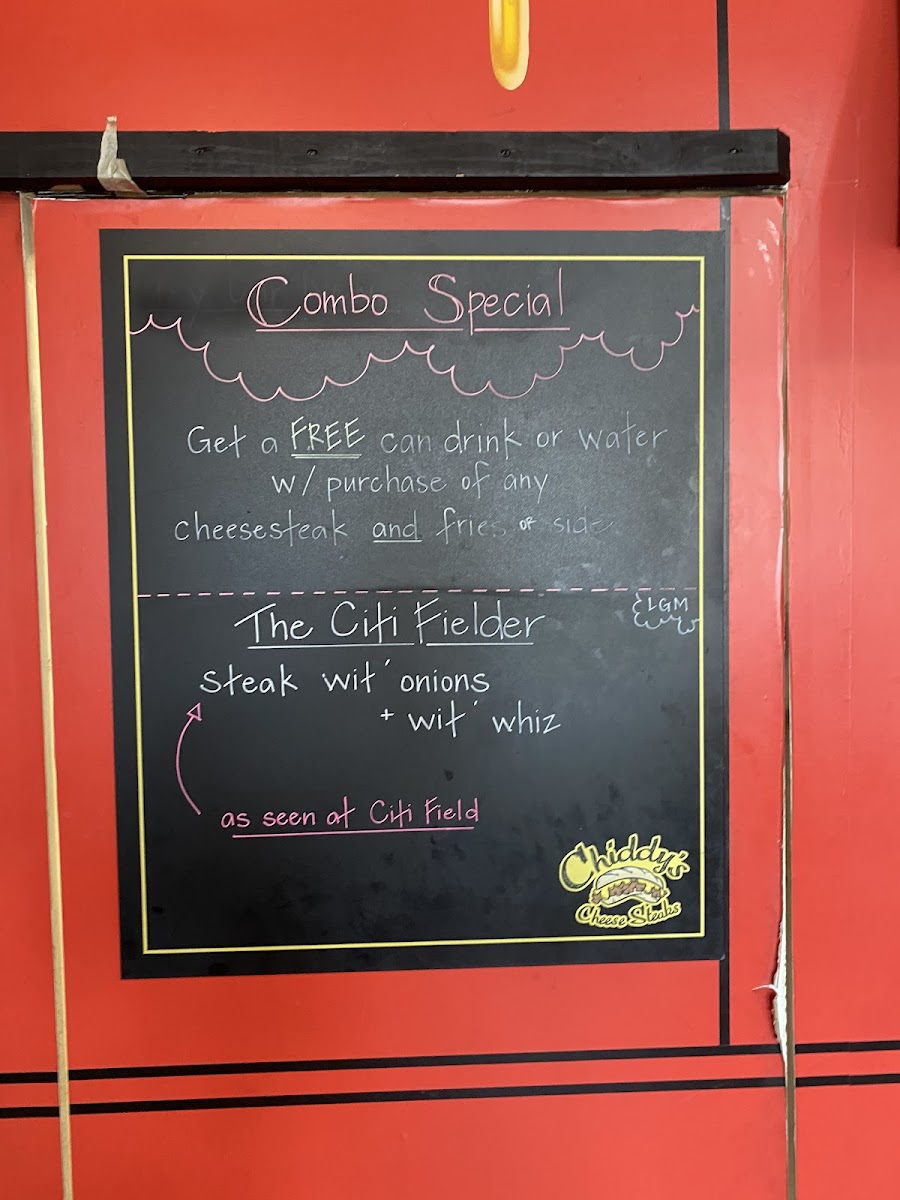 Combo Special
Get a FREE can drink or water
w/ purchase of any
cheesesteak and fries or side
The Citi Fielder
LGM
steak wit' onions
+ wit' whiz
as seen at Citi Field
Chiddy's
Cheese Steaks